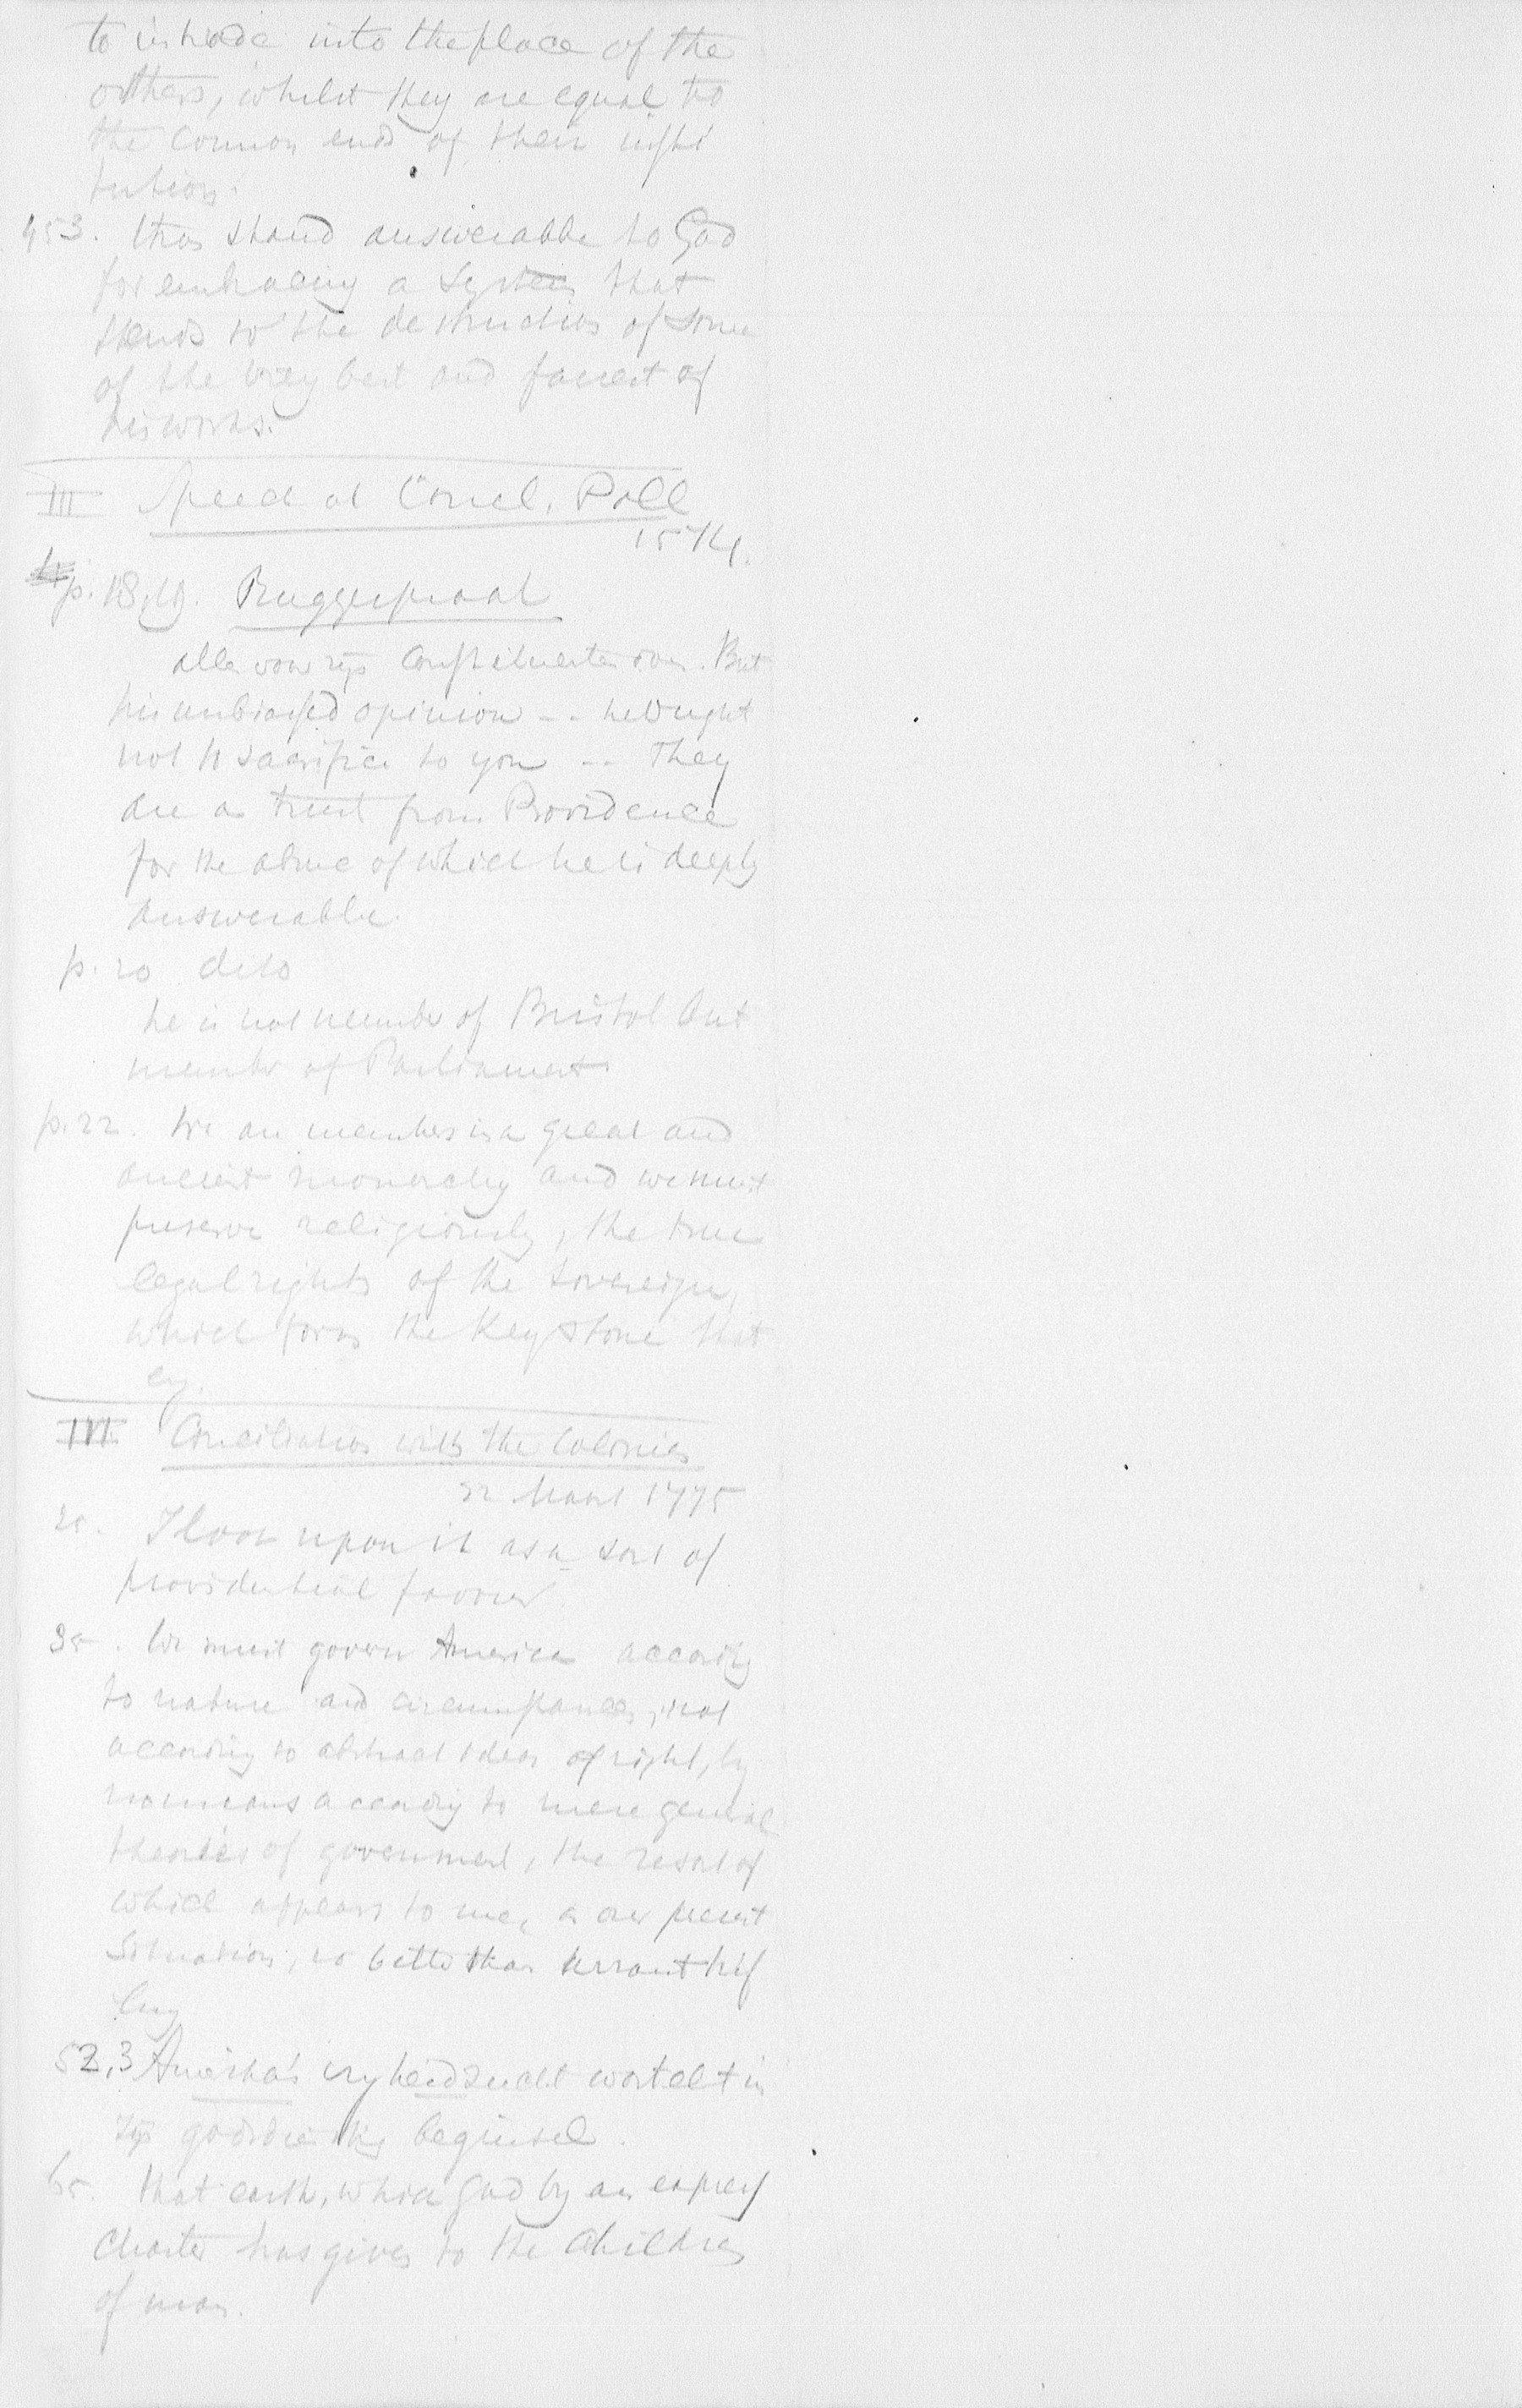 to intrude into the place of the
others, whilst they are equal to
the common ends of their insti
tution.
453. than stand answerable to God
for embracing a system that
tends to the destruction of some
of the very best and fairest of
his works.
III Speech at Concl. Poll
1774.
p. 18,19. Ruggespraak
alles voor zijn Constituenten over. But
his unbiassed opinion -- he ought
not to sacrifice to you -- They
are a trust from Providence
for the abuse of which he is deeply
answerable.
p. 20 dito
he is not member of Bristol but
member of Parliament
p. 22. We are members in a great and
ancient monarchy and we must
preserve religiously, the true
legal rights of the sovereign,
which form the Key stone that
en
III Conciliation with the Colonies
22 Maart 1775
20. I look upon it as a sort of
providential favour.
35. We must govern America according
to nature and circumstances, not
according to abstract ideas of right, by
no means according to mere general
theories of government, the resort of
which appears to me, in our present
situation, no better than arrant trif
ling
52,3 Amerika's vrijheidszucht wortelt in
zijn godsdienstig beginsel.
65. that earth, which God by an express
Charter has given to the Children
of men.